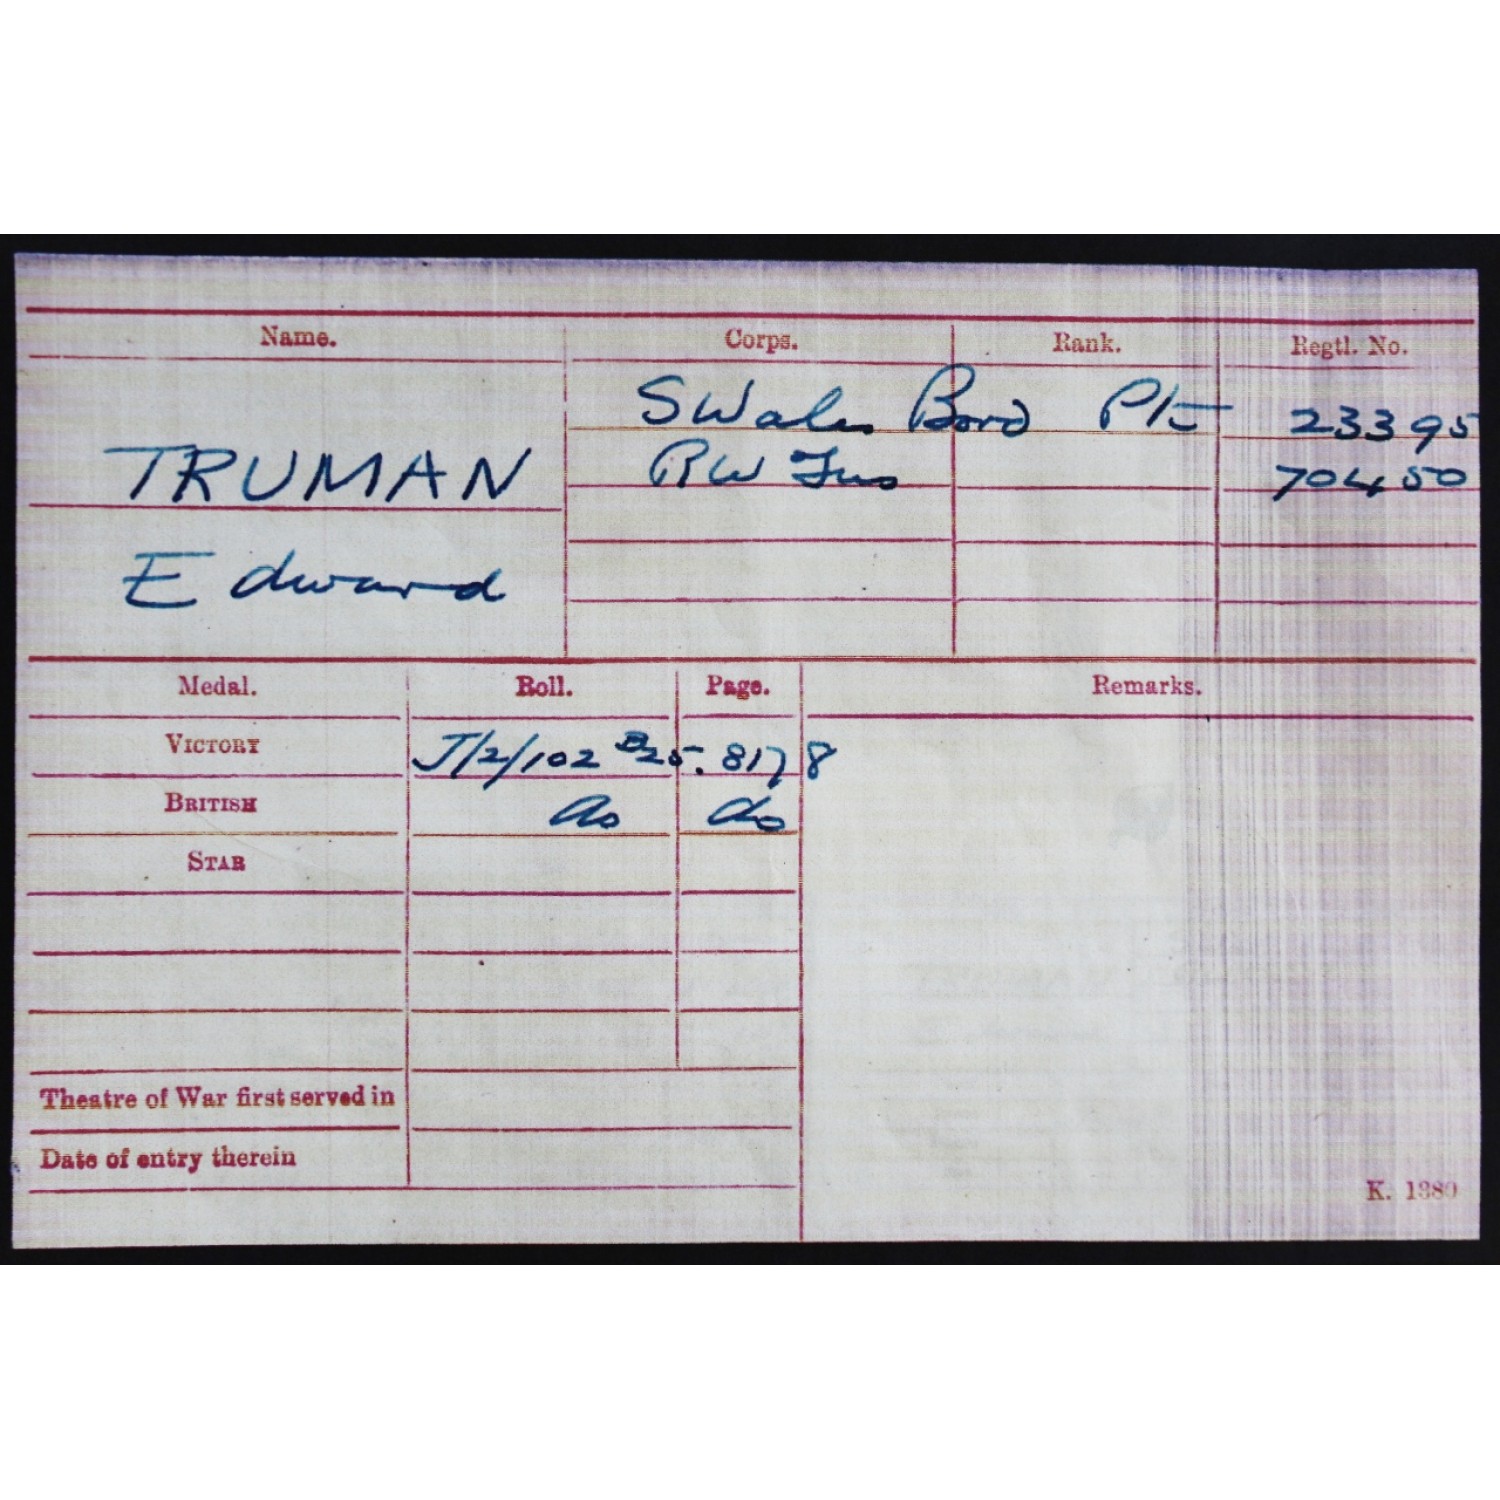 Name. Corps. Rank. Regtl. No.
S Wales Bord Pte 23395
TRUMAN RW Fus 70450
Edward
Medal. Roll. Page. Remarks.
VICTORY J/2/102 B25. 8178
BRITISH do do
STAR
Theatre of War first served in
Date of entry therein
K. 1380